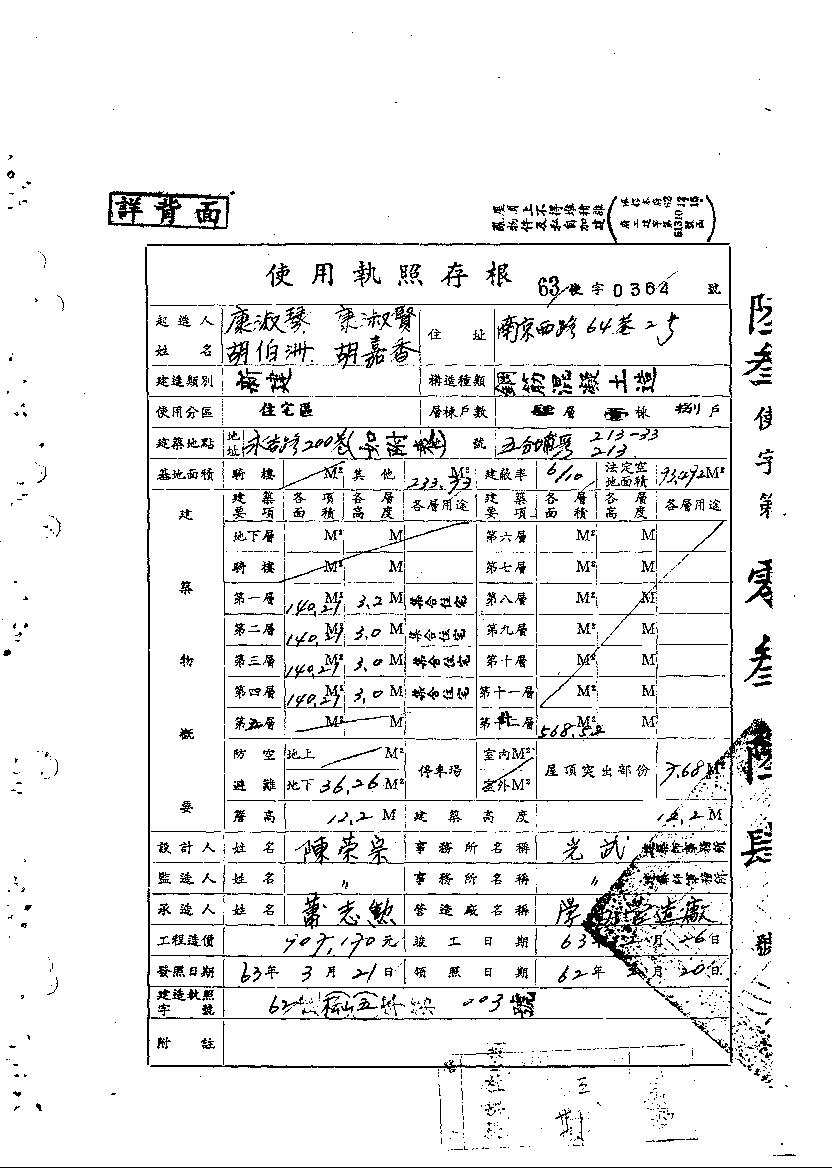 詳背面
屋頂上不得堆積雜
物件及私自加建
使用執照存根 63使字0364號
起造人姓名 康淑琴 康淑賢 胡伯洲 胡嘉香 住址 南京西路64巷2号
建造類別 新建 構造種類 鋼筋混凝土造
使用分區 住宅區 層棟戶數 層 棟 戶
建築地點 地址 永吉路200巷 號 五分埔 213-33 213
基地面積 騎樓 M² 其他 233.73 M² 建蔽率 6/10 法定空地面積 93.492M²
建築物概要 建築要項 各項面積 各層高度 各層用途 建築要項 各層面積 各層高度 各層用途
地下層 M² M 第六層 M² M
騎樓 M² M 第七層 M² M
第一層 140.29 M² 3.2 M 集合住宅 第八層 M² M
第二層 140.29 M² 3.0 M 集合住宅 第九層 M² M
第三層 140.29 M² 3.0 M 集合住宅 第十層 M² M
第四層 140.29 M² 3.0 M 集合住宅 第十一層 M² M
第五層 M² M 568.52
防空避難 地上 M² 地下 36.26 M² 停車場 室內M² 室外M² 屋頂突出部份 7.68 M²
簷高 12.2 M 建築高度 12.2 M
設計人 姓名 陳榮宗 事務所名稱 光武 建築師事務所
監造人 姓名 〃 事務所名稱 〃 建築師事務所
承造人 姓名 蕭志欽 營造廠名稱 營造廠
工程造價 元 竣工日期 63年 月26日
發照日期 63年3月21日 領照日期 62年 月20日
建造執照字號 62 松山五 003號
附註
陸叁使字第零叁陸肆號